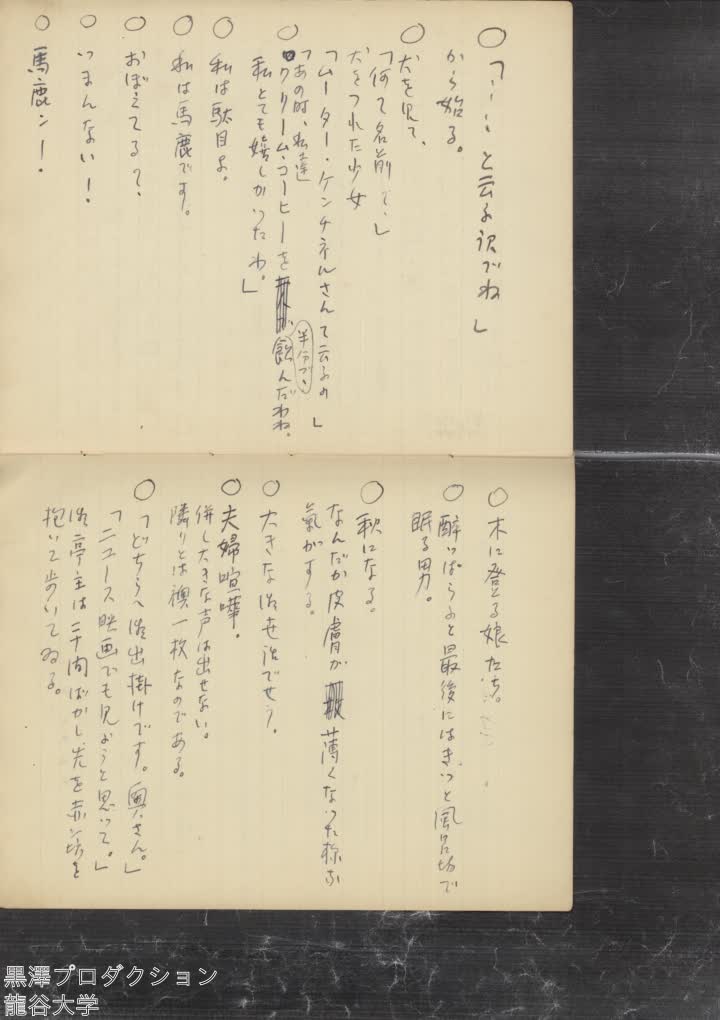 ○「‥‥と云ふ訳でね」
から始る。
○犬を見て、
「何て名前で、」
犬をつれた少女
「ムーター・ケンチネルさんて云ふの」
○「あの時、私達
クリーム・コーヒーを半分づゝ飲んだわね。
私とても嬉しかったわ。」
○私は駄目よ。
○私は馬鹿です。
○おぼえてる？、
○いまんない！
○馬鹿ン！.
○木に登る娘たち。
○酔っぱらふと最後にはきっと風呂場で
眠る男。
○秋になる。
なんだか皮膚が薄くなった様な
氣がする。
○大きな御世話でせう。
○夫婦喧嘩。
併し大きな声は出せない。
隣りとは襖一枚なのである。
○「どちらへ御出掛けです。奥さん。」
「ニュース映画でも見ようと思って。」
御亭主は二十間ばかし先を赤ン坊を
抱いて歩いてゐる。
黒澤プロダクション
龍谷大学